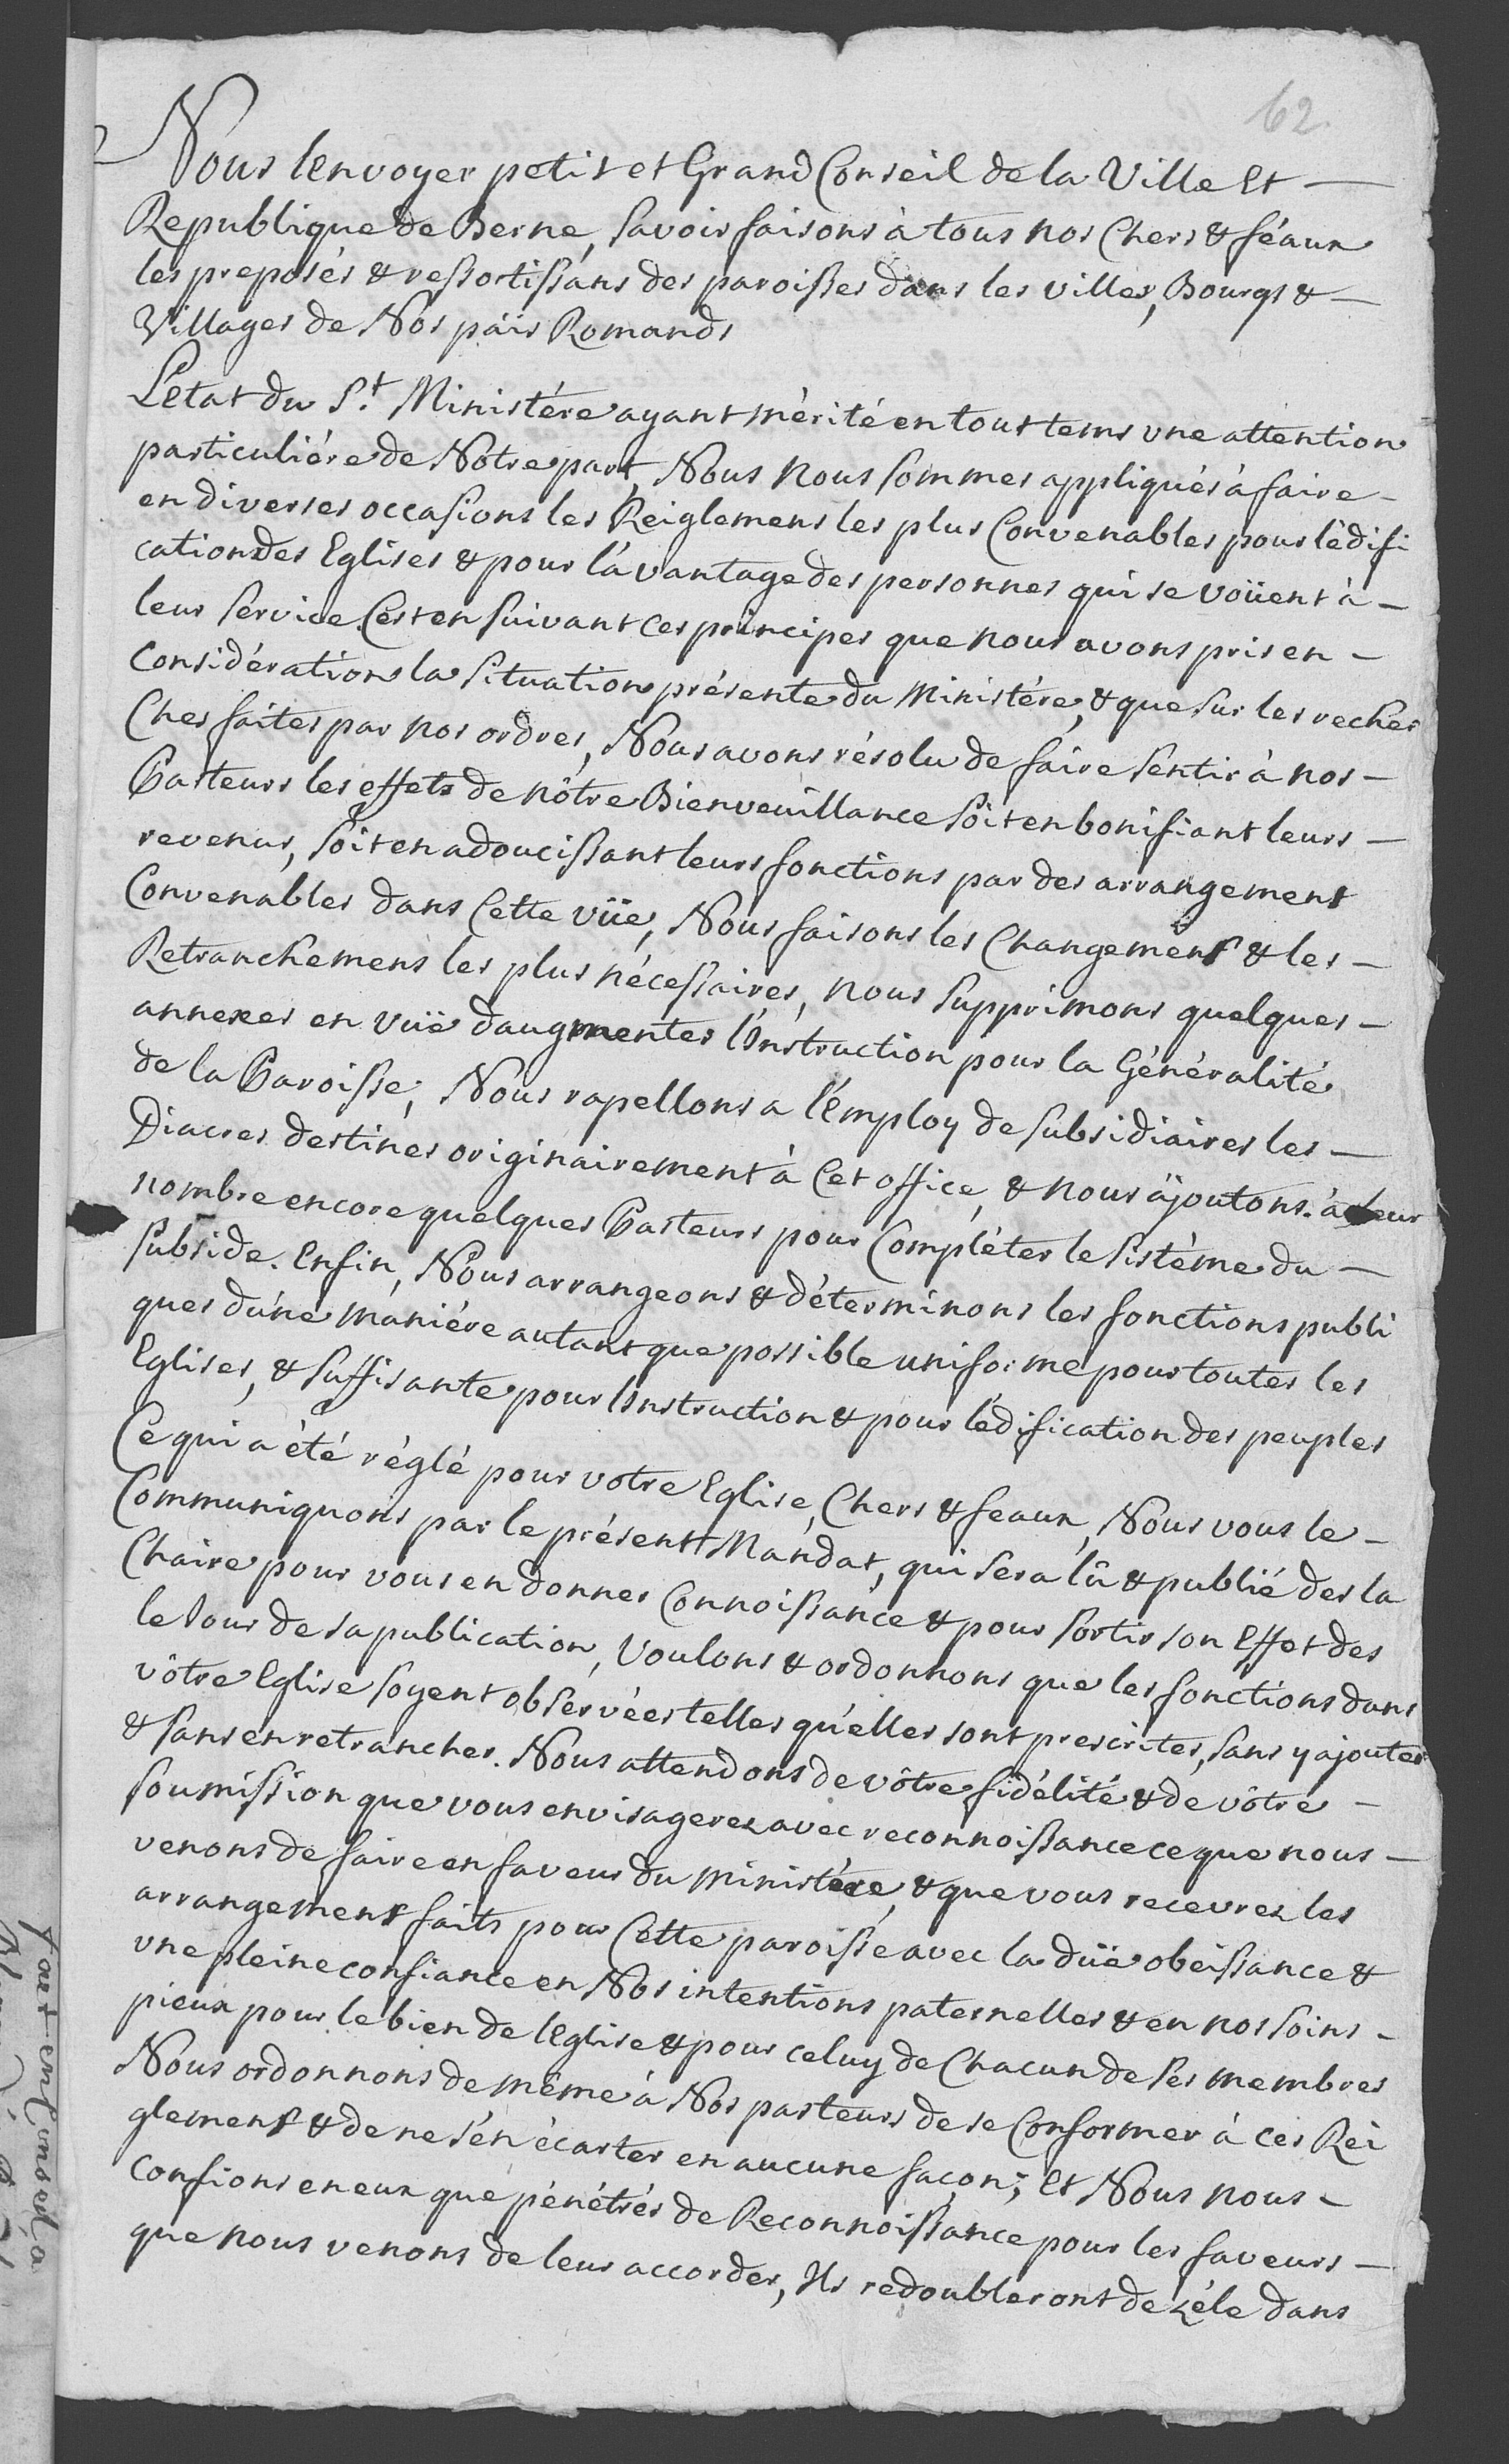 62.
Nous lenvoyer petit et Grand Conseil de la Ville Et
Republique de Berne, savoir faisons à tous nos Chers & féaux
les preposés & ressortissans des paroisses dans les villes, Bourgs &
Villages de Nos païs Romands
L'Etat du St. Ministére ayant mérité en tout tems une attention
particuliére de Nôtre part, Nous nous sommes appliqués à faire
en diverses occasions les Reiglemens les plus Convenables pour l'édifi
cation des Eglises & pour l'avantage des personnes qui se voüent à
leur service. C'est en suivant ces principes que nous avons pris en
Considération la situation présente du Ministére, & que sur les recher
Ches faites par nos ordres, Nous avons résolu de faire sentir à nos
Pasteurs les effets de nôtre Bienveuillance soit en bonifiant leurs
revenus, soit en adoucissant leurs fonctions par des arrangemens
Convenables dans Cette vüe, Nous faisons les Changemens & les
Retranchemens les plus nécessaires, nous supprimons quelques
annexes en vuë d'augmenter l'Instruction pour la Généralité
de la Paroisse, Nous rapellons a l'Employ de subsidiaires les
Diacres destines originairement à Cet office, & nous ajoutons à leur
nombre encore quelques Pasteurs pour Compléter le sistéme du
subside. Enfin, Nous arrangeons & déterminons les fonctions publi
ques d'une maniére autant que possible uniforme pour toutes les
Eglises, & suffisante pour l'Instruction & pour l'édification des peuples
Ce qui a été réglé pour votre Eglise, Chers & feaux, Nous vous le
Communiquons par le présent Mandat, qui sera lû & publié des la
Chaire pour vous en donner Connoissance & pour sortir son Effet des
le Jour de sa publication, Voulons & ordonnons que les fonctions dans
vôtre Eglise soyent observées telles qu'elles sont prescrites, sans y ajouter
& sans en retrancher. Nous attendons de vôtre fidélité & de vôtre
soumission que vous envisagerez avec reconnoissance ce que nous
venons de faire en faveur du ministére, & que vous recevrez les
arrangemens faits pour Cette paroisse avec la düe obeissance &
une pleine confiance en Nos intentions paternelles & en nos soins
pieux pour le bien de l'Eglise & pour celuy de Chacun de ses membres
Nous ordonnons de même à Nos pasteurs de se Conformer à ces Rei
glemens & de ne s'en écarter en aucune façon; Et Nous nous
confions en eux que pénétrés de Reconnoissance pour les faveurs
que nous venons de leur accorder, Ils redoubleront de zéle dans